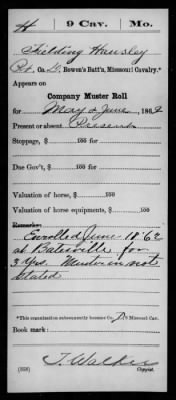 H | 9 Cav. | Mo.
Skilding Hansley
Pt., Co. D, Bowen's Batt'n, Missouri Cavalry.*
Appears on
Company Muster Roll
for May & June, 1862
Present or absent Present
Stoppage, $ 100 for
Due Gov't, $ 100 for
Valuation of horse, $ 100
Valuation of horse equipments, $ 100
Remarks:
Enrolled June 18 '62
at Batesville for
3 yrs. Muster in not
stated
*This organization subsequently became Co. D, 9 Missouri Cav.
Book mark:
T. Walker
(358) Copyist.